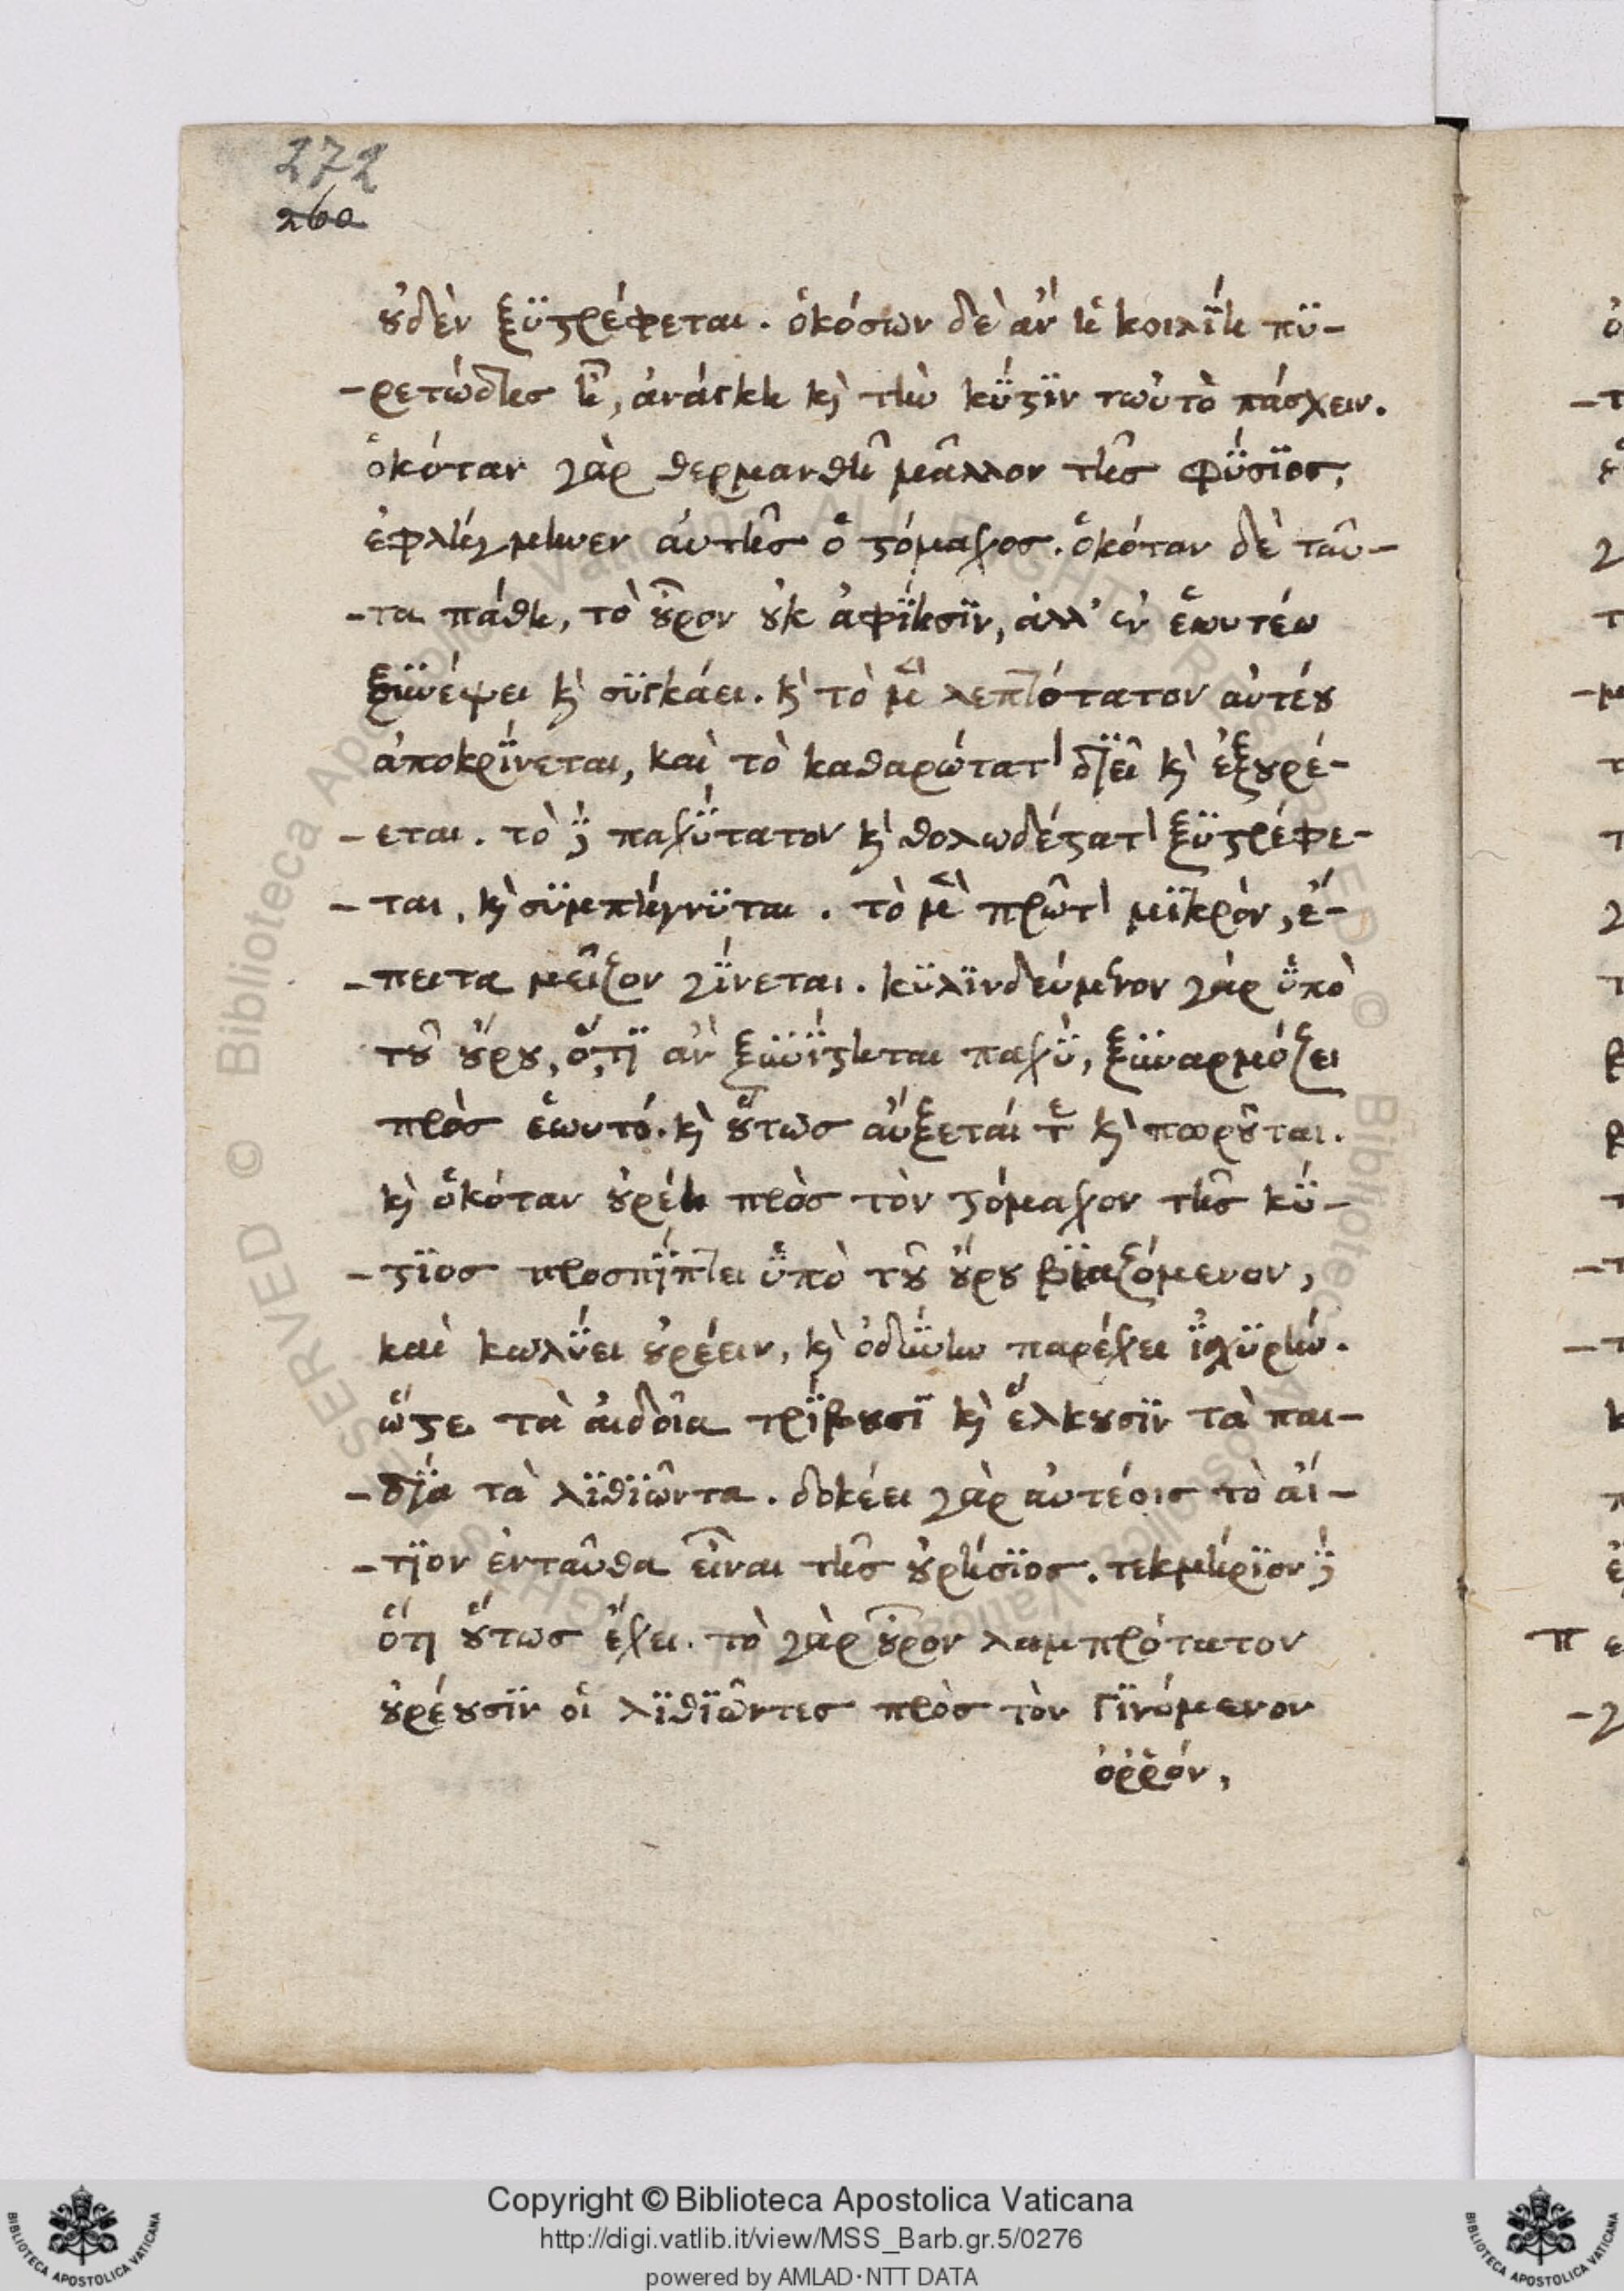 272
260
οὐδὲν ξϋστρέφεται. ὁκόσων δὲ ἂν ἡ κοιλΐη πϋ-
-ρετώδης ᾖ, ἀνάγκη κὴ τὴν κΰστϊν τωὐτὸ πάσχειν.
ὁκόταν γὰρ θερμανθῆ μᾶλλον τῆς φΰσϊος,
ἐφλέγμηνεν ἀυτῆς ὁ στόμαχος. ὁκόταν δὲ ταῦ-
-τα πάθη, τὸ οὖρον οὐκ ἀφΐησϊν, ἀλλ' ἐν ἑωυτέω
ξϋνέψει κὴ σϋγκάει. κὴ τὸ μὲν λεπτότατον αὐτέου
ἀποκρΐνεται, καὶ τὸ καθαρώτατον δϊεῖ κὴ ἐξουρέ-
-εται. τὸ δὲ παχΰτατον κὴ θολωδέστατον ξϋστρέφε-
-ται, κὴ σϋμπήγνϋται. τὸ μὲν πρῶτον μϊκρὸν, ἔ-
-πειτα μεῖζον γΐνεται. κϋλϊνδεύμενον γὰρ ὑπὸ
τοῦ οὔρου, ὅ,τϊ ἂν ξϋνΐστηται παχὺ, ξϋναρμόζει
πρὸς ἑωυτό. κὴ οὕτως αὔξεταί τε κὴ πωροῦται.
κὴ ὁκόταν οὐρέη πρὸς τὸν στόμαχον τῆς κΰ-
-στϊος προσπΐπτει ὑπὸ τοῦ οὔρου βϊαζόμενον,
καὶ κωλΰει οὐρέειν, κὴ ὀδΰνην παρέχει ἰσχϋρήν.
ὥστε τὰ ἀιδοῖα τρΐβουσϊ κὴ ἕλκουσϊν τὰ παι-
-δϊά τὰ λϊθϊῶντα. δοκέει γὰρ αὐτέοις τὸ αἴ-
-τϊον ἐνταῦθα εἶναι τῆς οὐρήσϊος. τεκμήρϊον δὲ
ὅτι οὕτως ἔχει. τὸ γὰρ οὖρον λαμπρότατον
οὐρέουσϊν οἱ λϊθϊῶντες πρὸς τὸν γϊνόμενον
ὀῤῥόν,
Copyright © Biblioteca Apostolica Vaticana
http://digi.vatlib.it/view/MSS_Barb.gr.5/0276
powered by AMLAD·NTT DATA